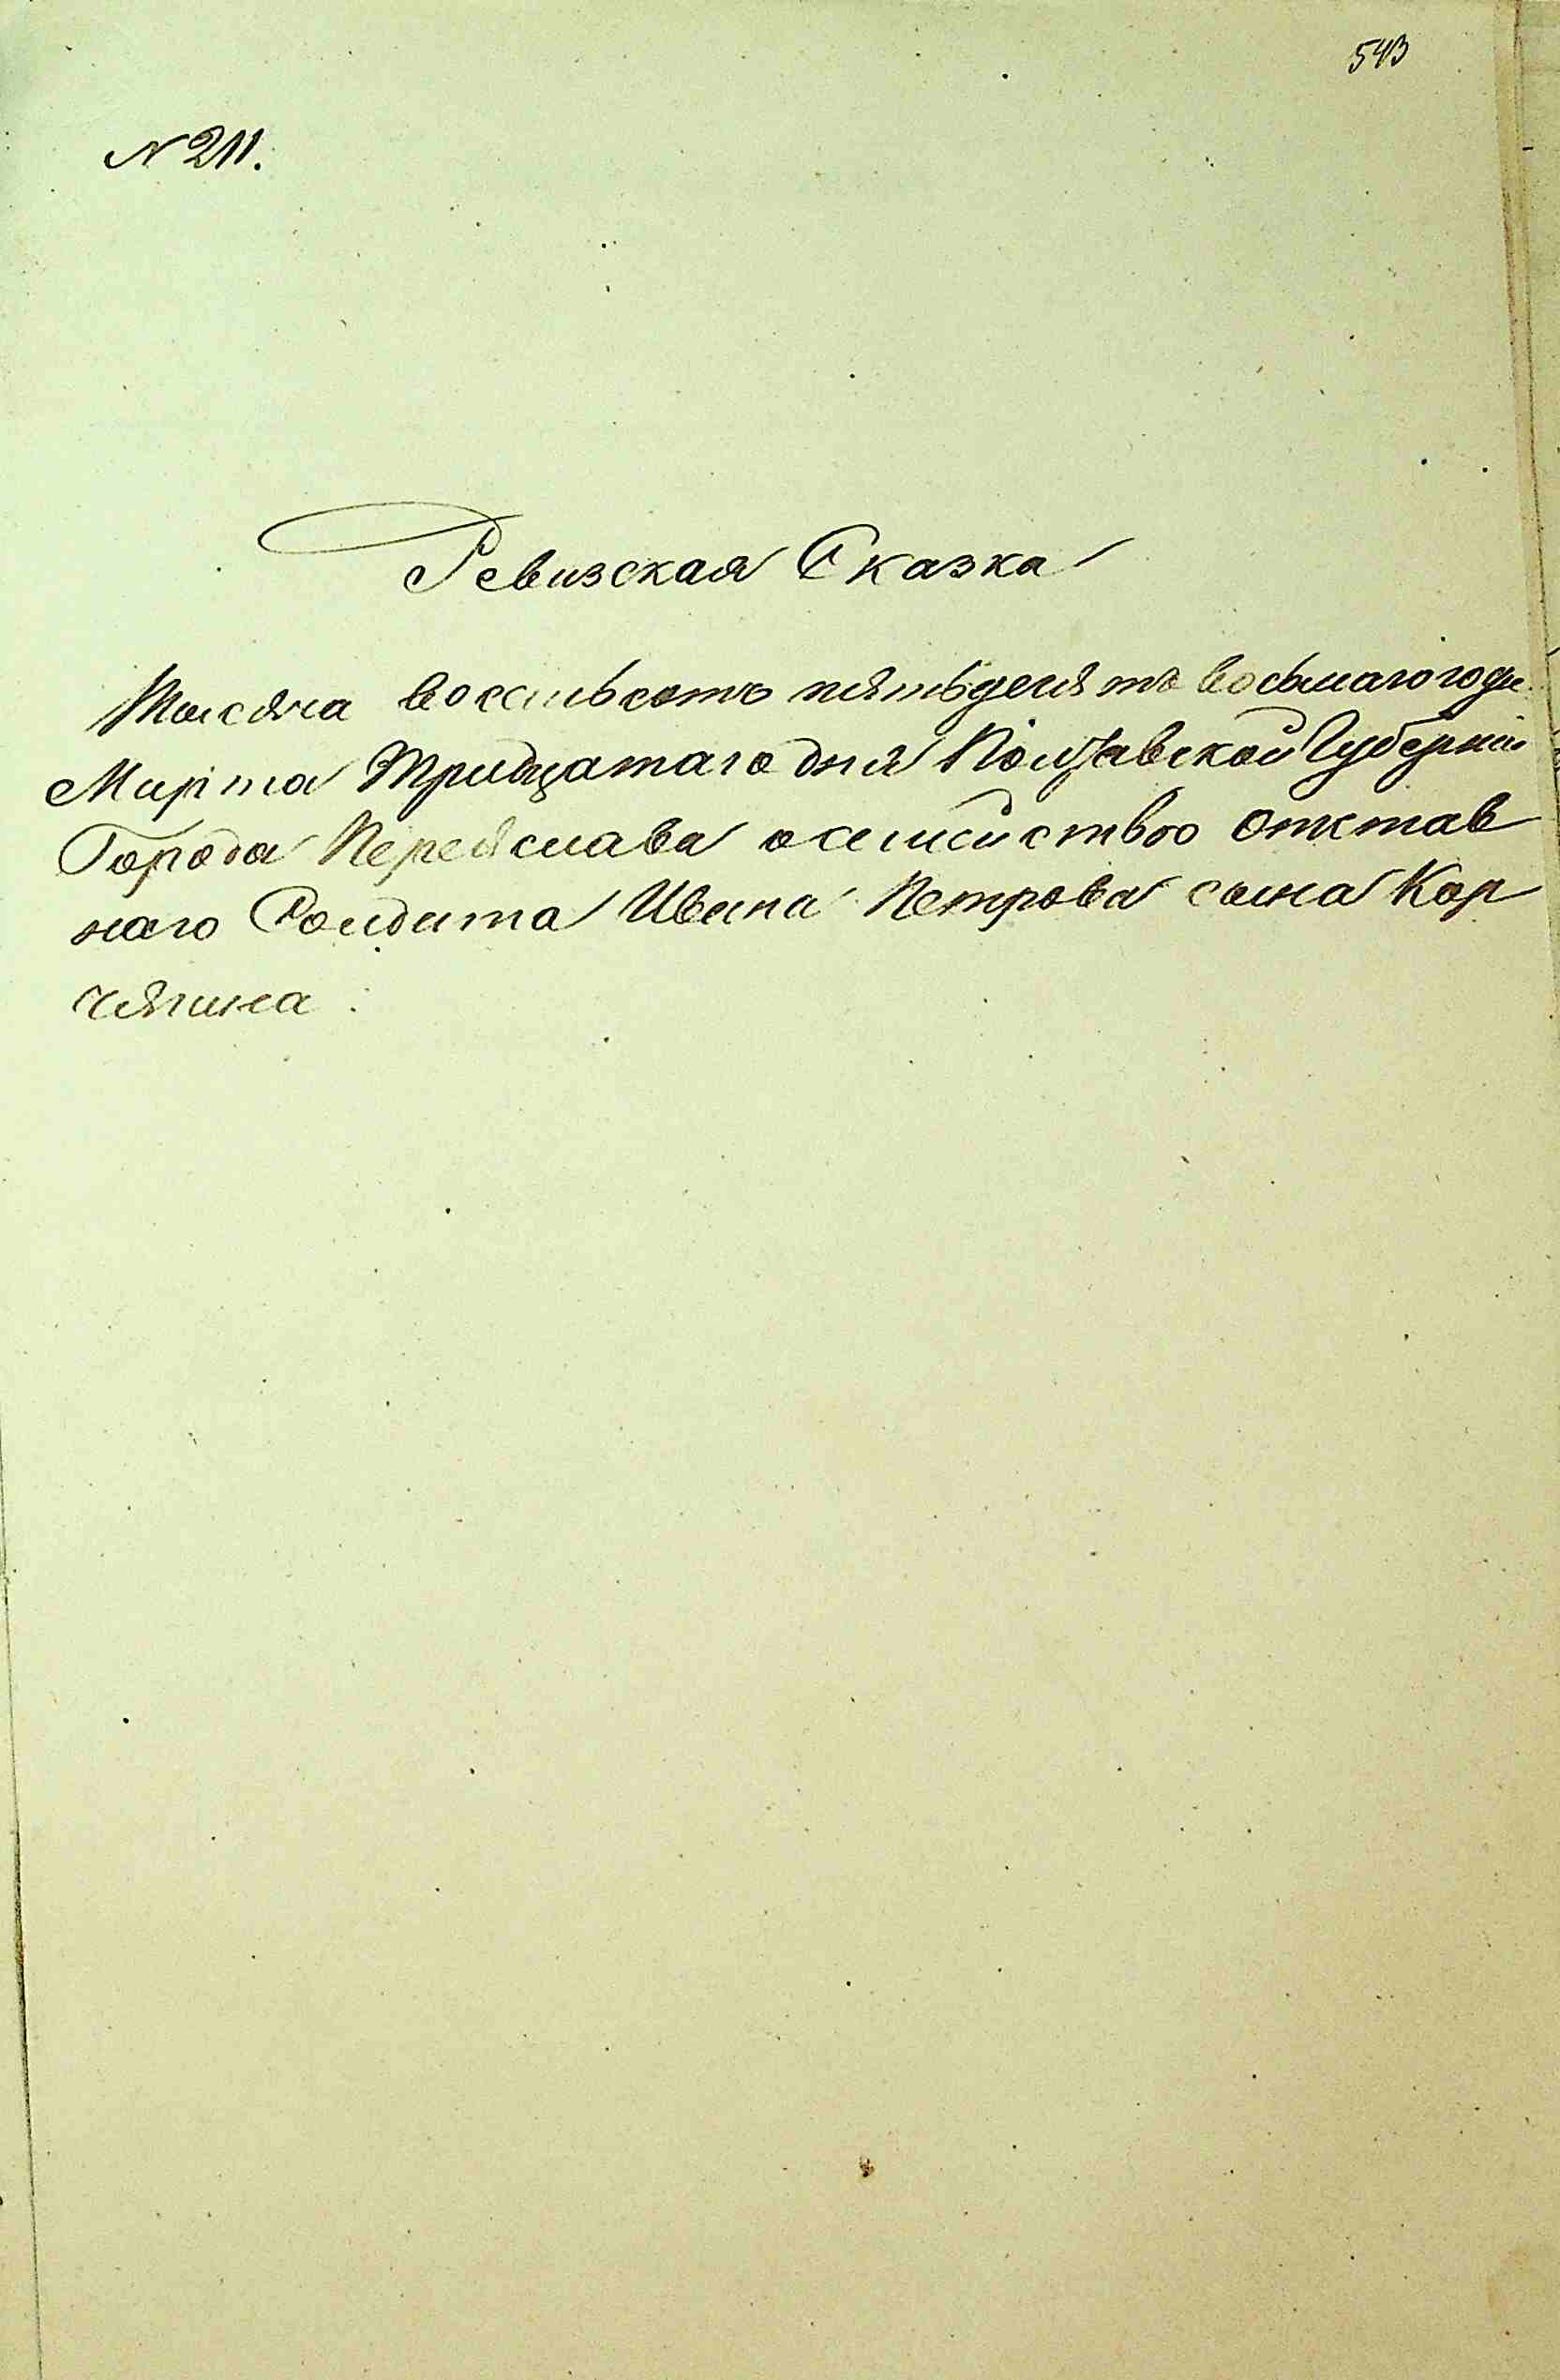 543
№ 211.
Ревизская Сказка
Тысяча восемьсотъ пятьдесятъ восьмаго года
Марта Тридцатаго дня Полтавской Губернии
Города Переяслава о семействю отстав
наго Солдата Ивана Петрова сына Кор
чягина